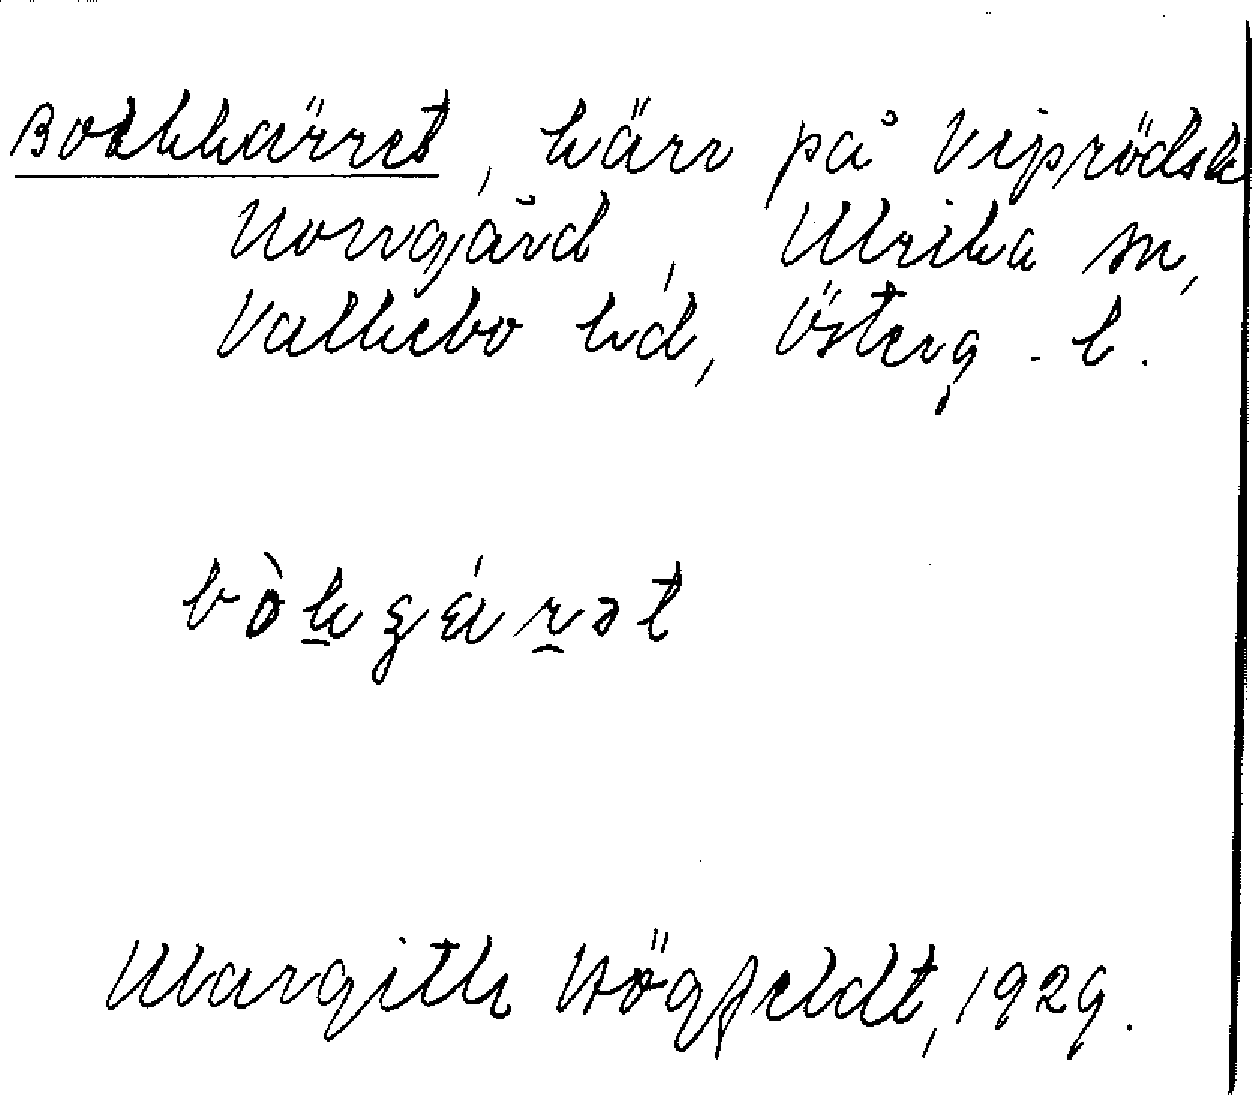 Bockkärret, kärr på Viprödsk
Norrgård, Ulrika sn,
Valkebo hd, Österg. l.
Margith Högfeldt, 1929.